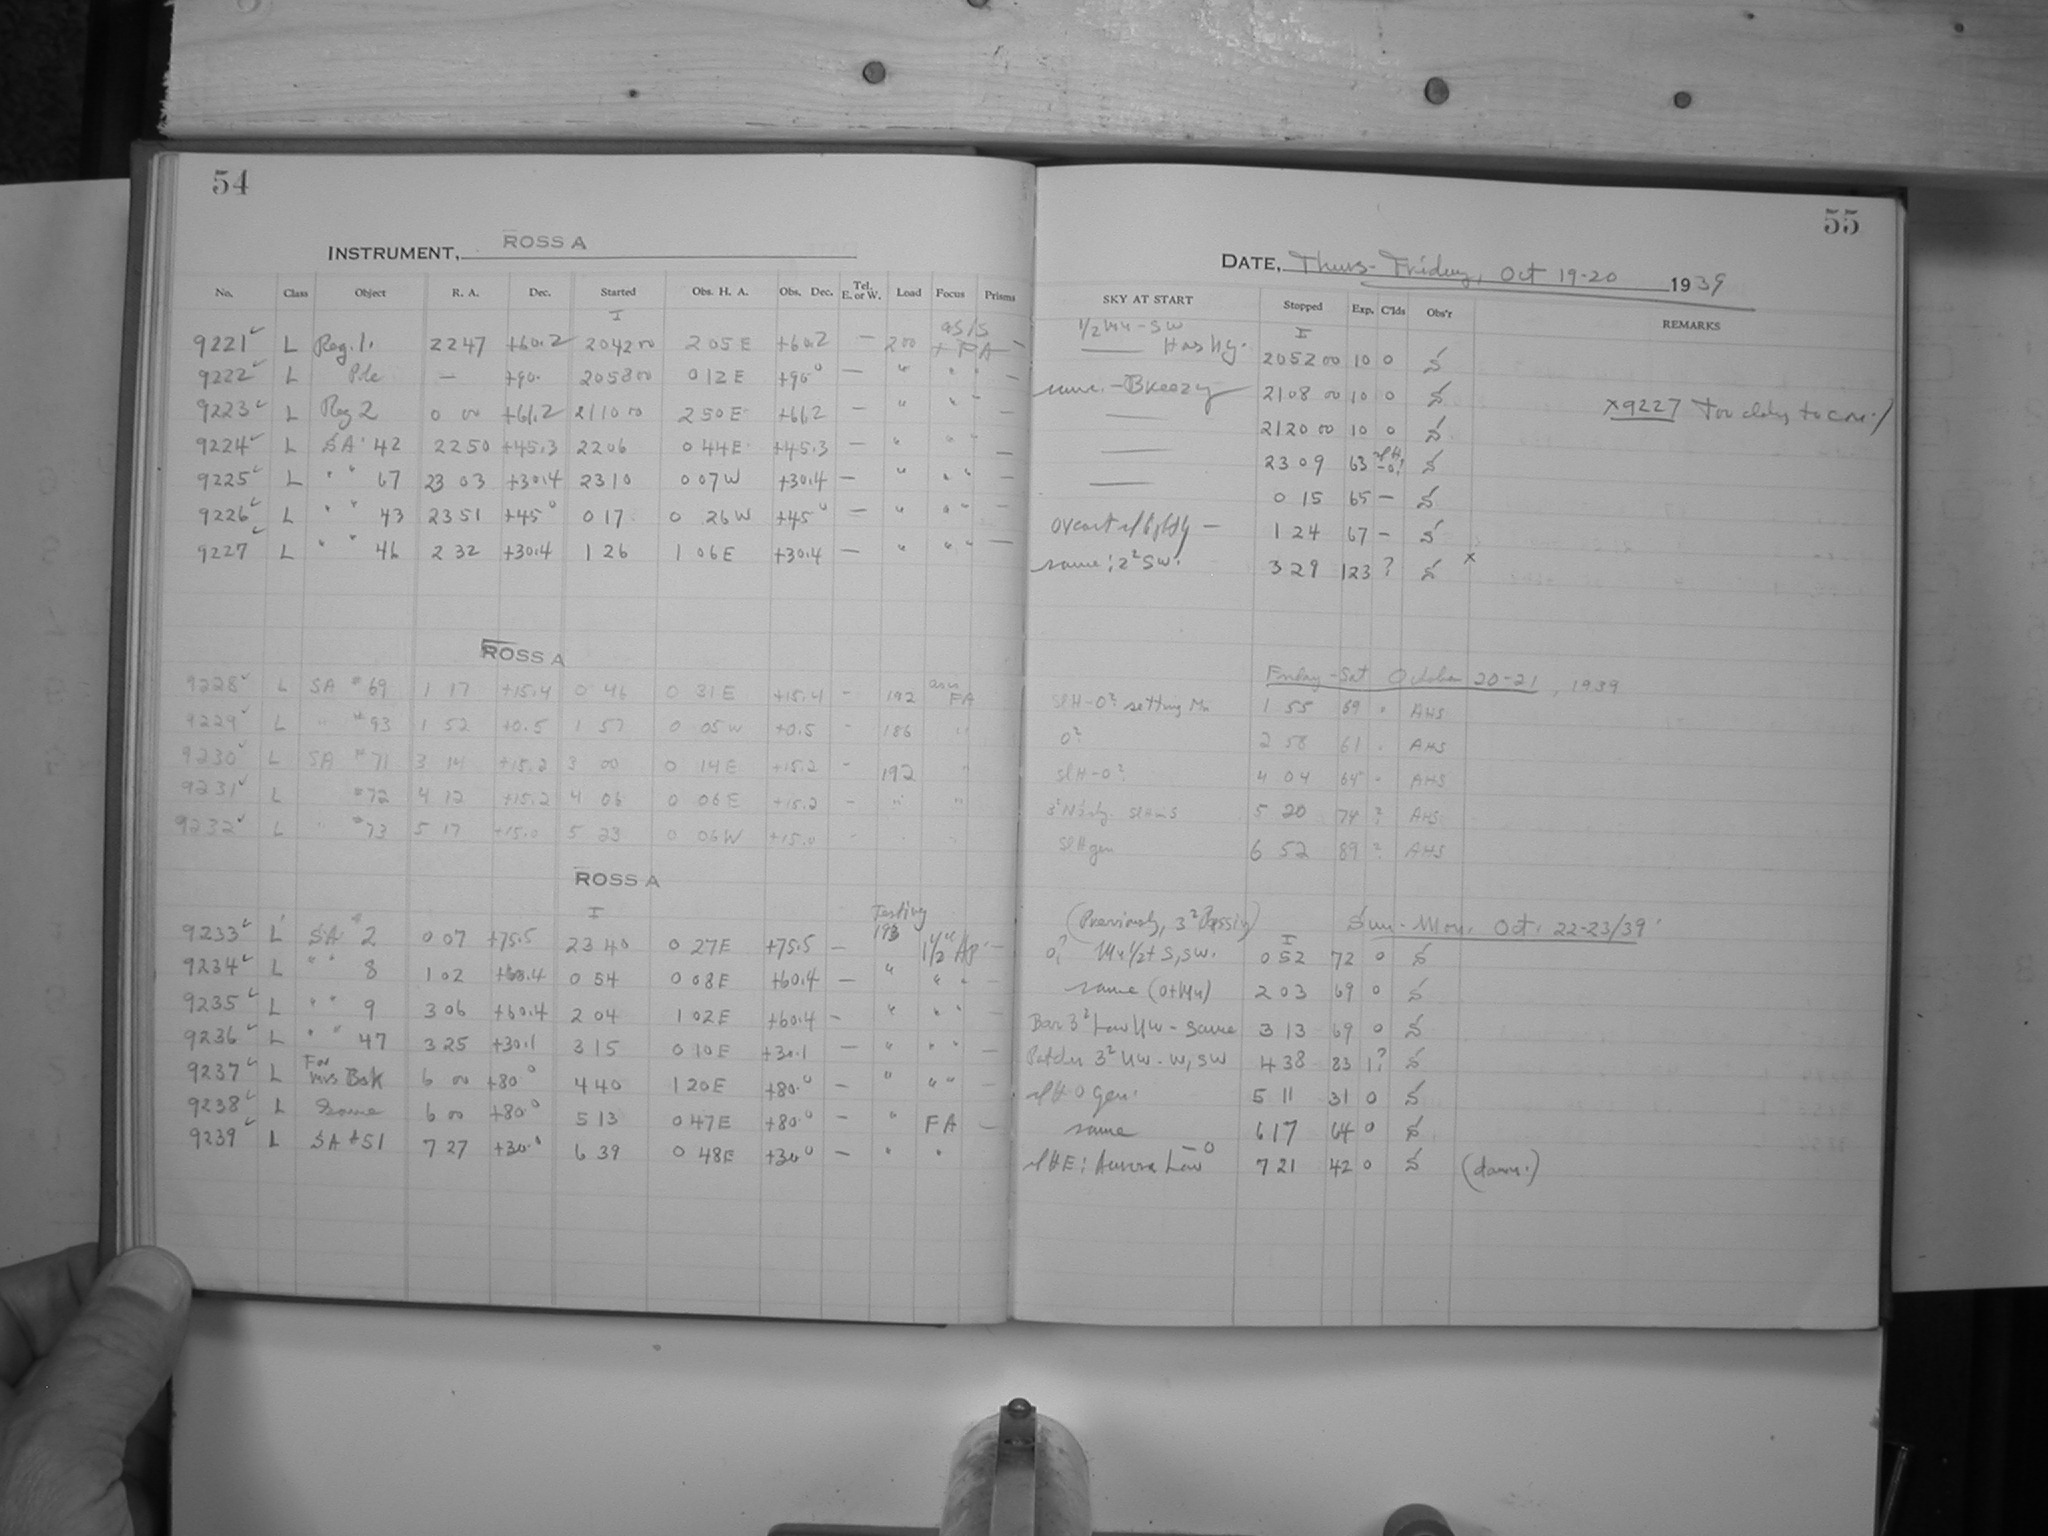 54
INSTRUMENT, ROSS A
No. Class Object R. A. Dec. Started Obs. H. A. Obs. Dec. Tel. E. or W. Load Focus Prisms
I
9221 L Reg. 1. 22 47 +60.2 20 42 00 2 05 E +60.2 — 200 + FA —
9222 L Pole — +90. 20 58 00 0 12 E +90° — " " " —
9223 L Reg 2 0 00 +61.2 21 10 00 2 50 E +61.2 — " " " —
9224 L SA 42 22 50 +45.3 22 06 0 44 E +45.3 — " " " —
9225 L " " 67 23 03 +30.4 23 10 0 07 W +30.4 — " " " —
9226 L " " 43 23 51 +45° 0 17 0 26 W +45° — " " " —
9227 L " " 46 2 32 +30.4 1 26 1 06 E +30.4 — " " " —
ROSS A
9228 L SA #69 1 17 +15.4 0 46 0 31 E +15.4 - 192 FA
9229 L " #93 1 52 +0.5 1 57 0 05 W +0.5 - 186 "
9230 L SA #71 3 14 +15.2 3 00 0 14 E +15.2 - 192 "
9231 L #72 4 12 +15.2 4 06 0 06 E +15.2 - " "
9232 L " #73 5 17 +15.0 5 23 0 06 W +15.0 - " "
ROSS A
I Testing
9233 L SA # 2 0 07 +75.5 23 40 0 27 E +75.5 — 193 1 1/2" Ap. —
9234 L " " 8 1 02 +60.4 0 54 0 08 E +60.4 — " " " —
9235 L " " 9 3 06 +60.4 2 04 1 02 E +60.4 — " " " —
9236 L " " 47 3 25 +30.1 3 15 0 10 E +30.1 — " " " —
9237 L For Mrs Bok 6 00 +80° 4 40 1 20 E +80.° — " " " —
9238 L Same 6 00 +80° 5 13 0 47 E +80.° — " FA —
9239 L SA #51 7 27 +30° 6 39 0 48 E +30° — " "
55
DATE, Thurs-Friday, Oct 19-20 1939
SKY AT START Stopped Exp. C'lds Obs'r REMARKS
I
Hashy. 20 52 00 10 0
same - Breezy 21 08 00 10 0
x9227 Too
—— 21 20 00 10 0
—— 23 09 63
—— 0 15 65 —
slightly — 1 24 67 —
same; 2² SW. 3 29 123 ? x
Friday-Sat October 20-21, 1939
Sl H-0? setting Mn 1 55 69 " AHS
0? 2 58 61 " AHS
Sl H-0? 4 04 64 " AHS
5 20 74 ? AHS
Sl H gen 6 52 89 ? AHS
(Previously, 3² Passing) Sun-Mon. Oct. 22-23/39
I
S, SW. 0 52 72 0
same 2 03 69 0
Bar 3² Low NW - same 3 13 69 0
Patches 3² NW-W, SW 4 38 83 1?
sl H 0 Gen. 5 11 31 0
same 6 17 64 0
sl HE: Aurora Low 7 21 42 0 (dawn!)